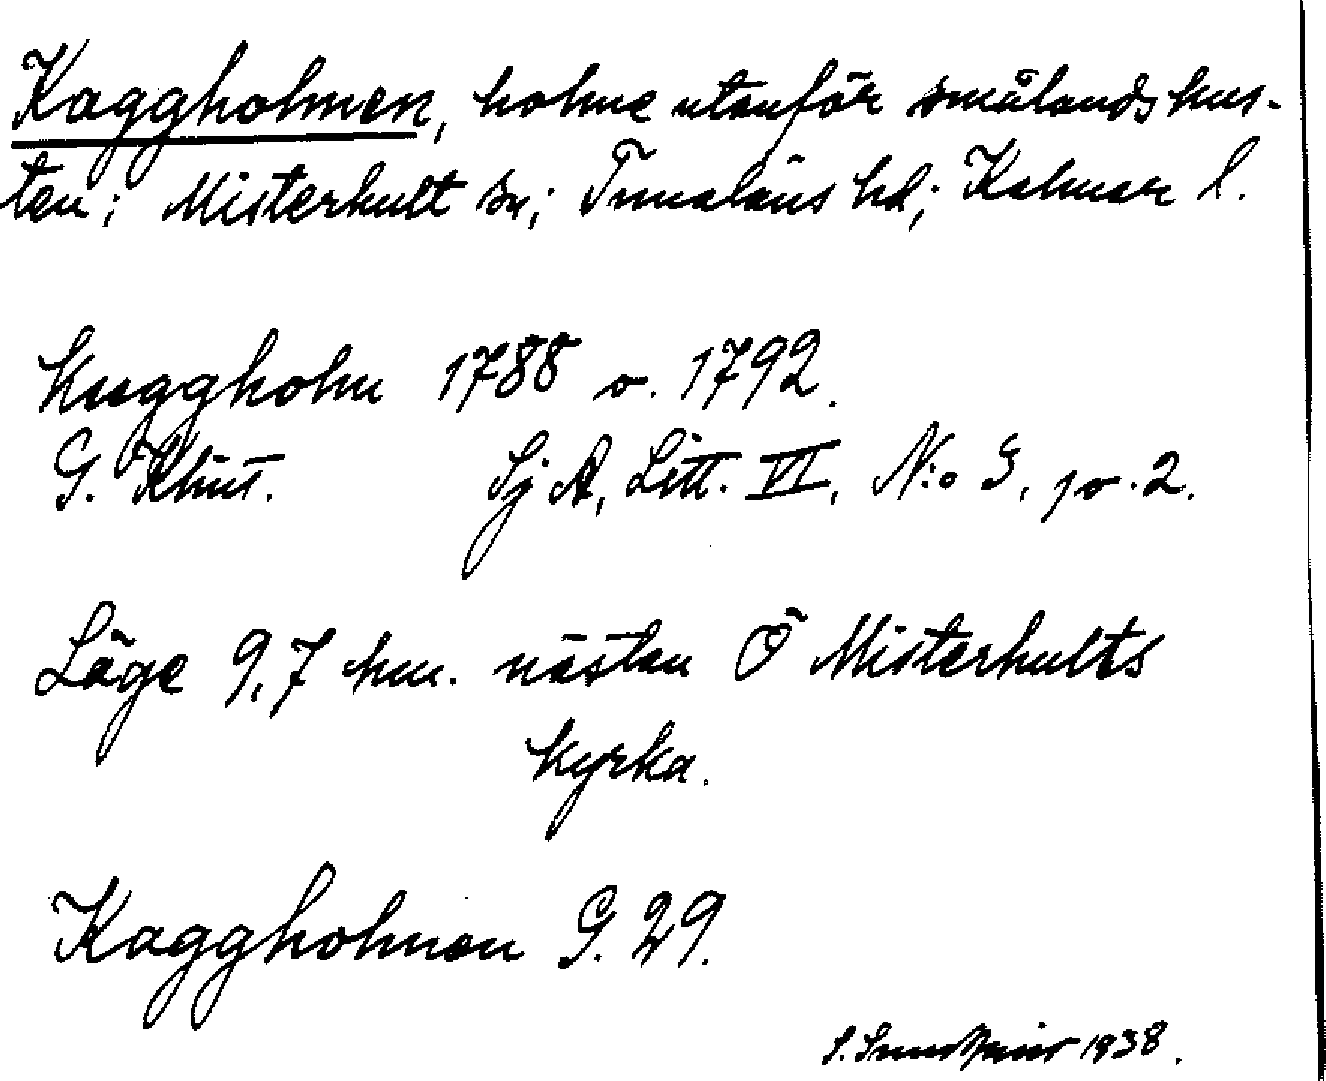 Kaggholmen, holme utanför smålandskus-
ten; Misterhult sn; Tunaläns hd; Kalmar l.
Kuggholm 1788 o. 1792.
G. Klint. Sj A, Litt. VI, N:o 3, p o. 2.
Läge 9,7 km. nästan Ö Misterhults
kyrka.
Kaggholmen G. 29.
1938.